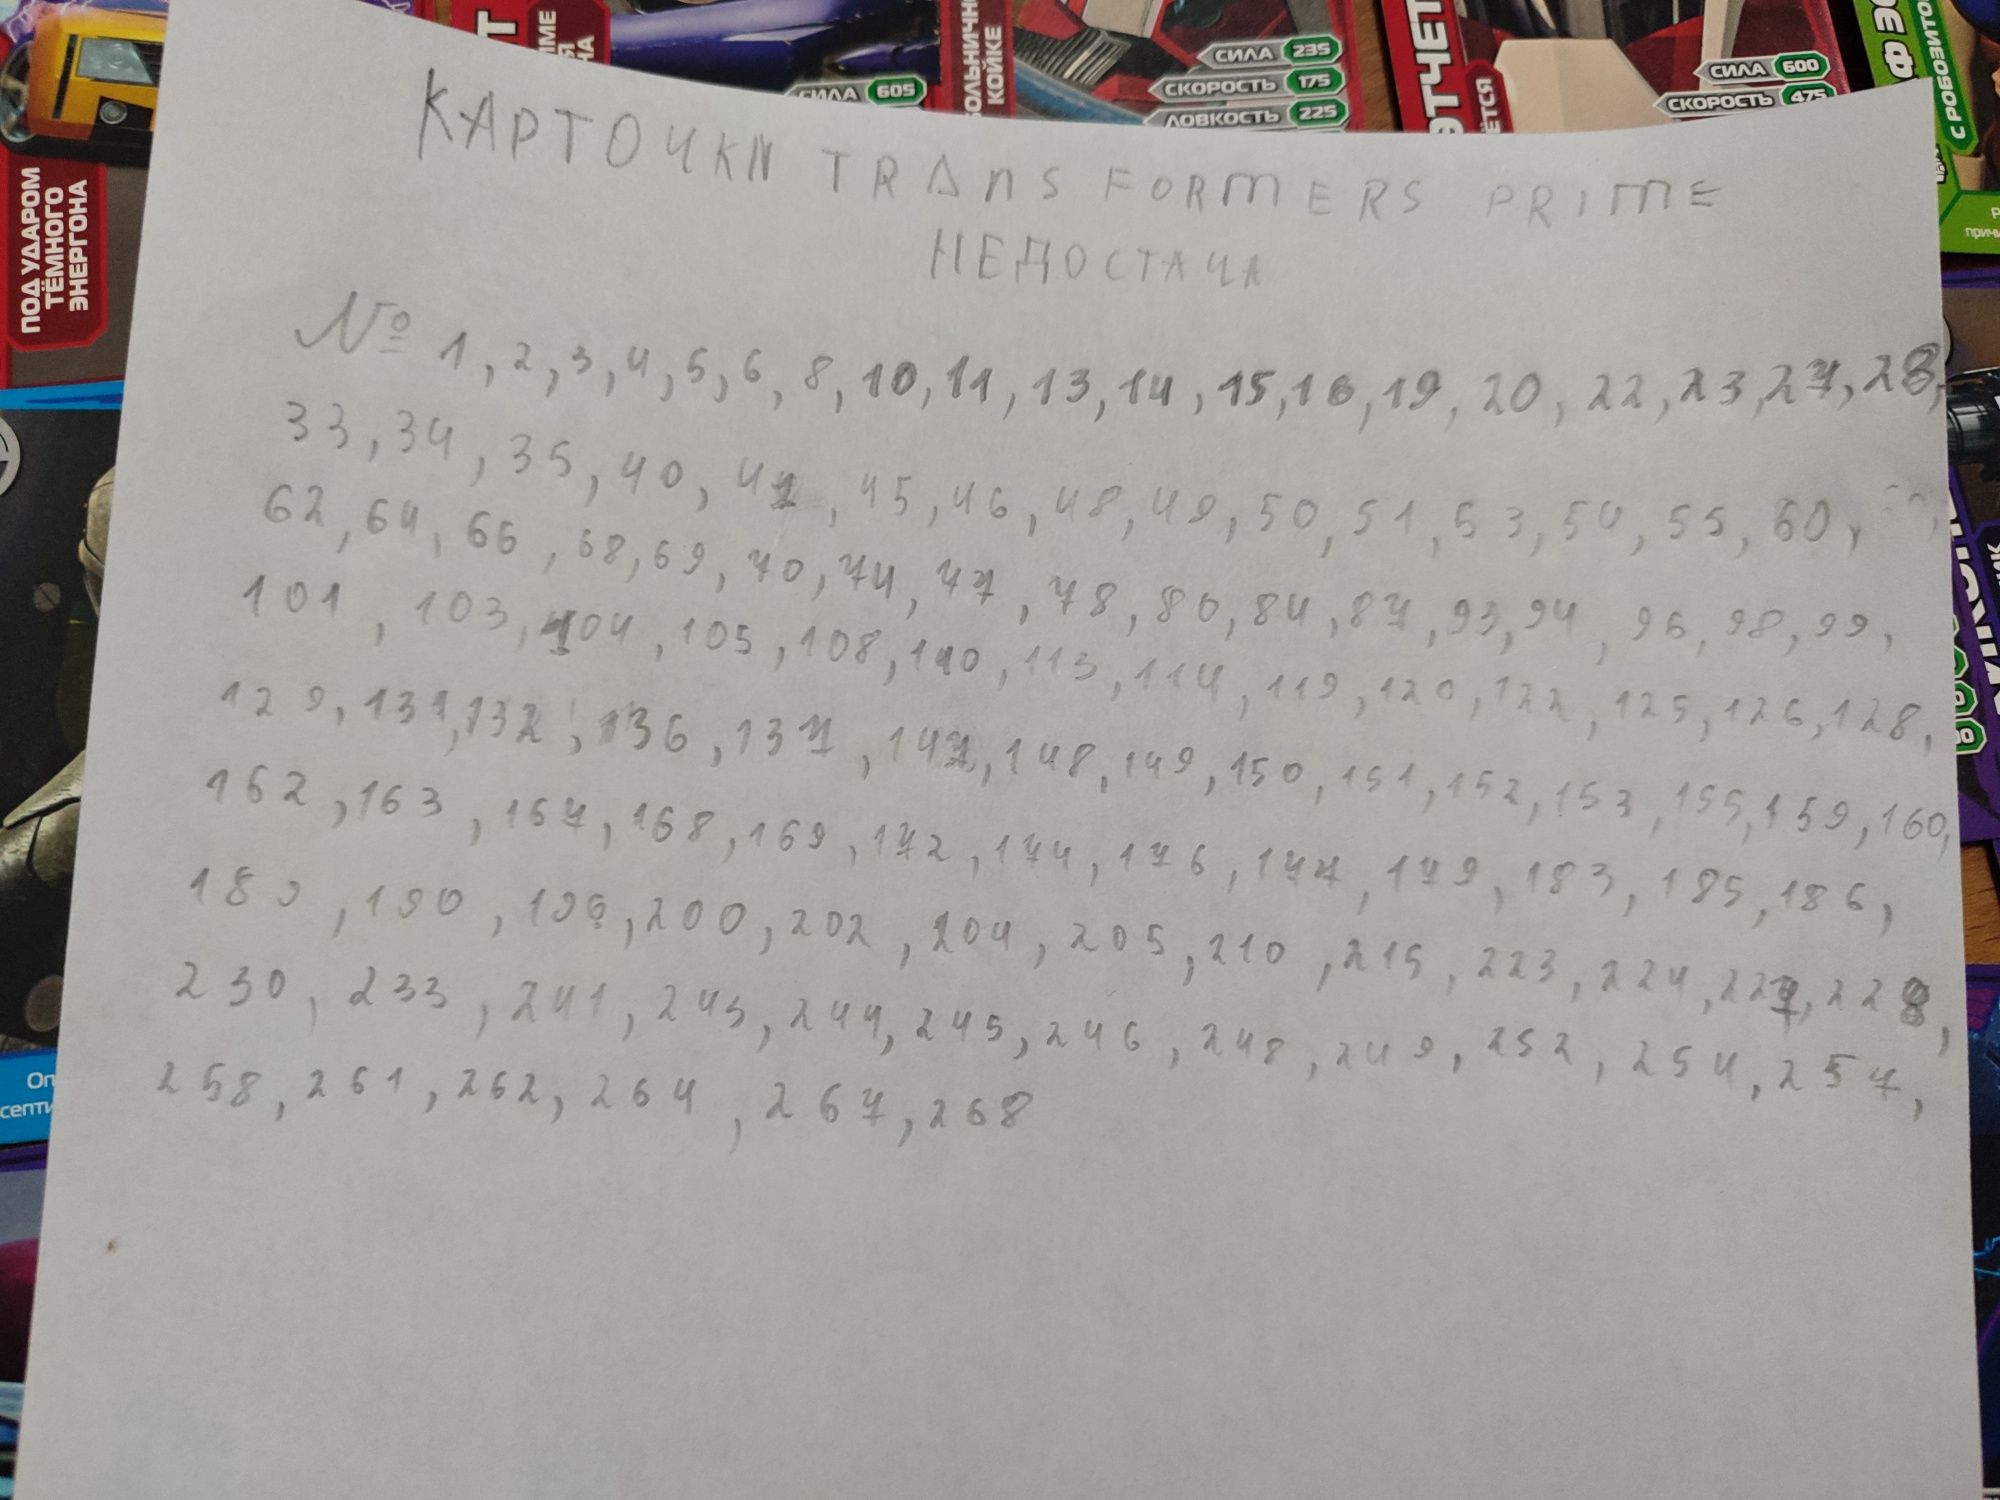 СИЛА 605
БОЛЬНИЧНО
КОЙКЕ
СИЛА 235
СКОРОСТЬ 175
ЛОВКОСТЬ 225
СИЛА 600
СКОРОСТЬ 475
С РОБОЗИТО
ПОД УДАРОМ
ТЁМНОГО
ЭНЕРГОНА
КАРТОЧКИ TRANSFORMERS PRIME
НЕДОСТАЧА
№ 1, 2, 3, 4, 5, 6, 8, 10, 11, 13, 14, 15, 16, 19, 20, 22, 23, 27, 28,
33, 34, 35, 40, 42, 45, 46, 48, 49, 50, 51, 53, 54, 55, 60,
62, 64, 66, 68, 69, 70, 74, 77, 78, 80, 84, 87, 93, 94, 96, 98, 99,
101, 103, 104, 105, 108, 110, 113, 114, 119, 120, 122, 125, 126, 128,
129, 131, 132, 136, 137, 147, 148, 149, 150, 151, 152, 153, 155, 159, 160,
162, 163, 167, 168, 169, 172, 174, 176, 177, 179, 183, 185, 186,
189, 190, 196, 200, 202, 204, 205, 210, 215, 223, 224, 227, 228,
230, 233, 241, 243, 244, 245, 246, 248, 249, 252, 254, 257,
258, 261, 262, 264, 267, 268